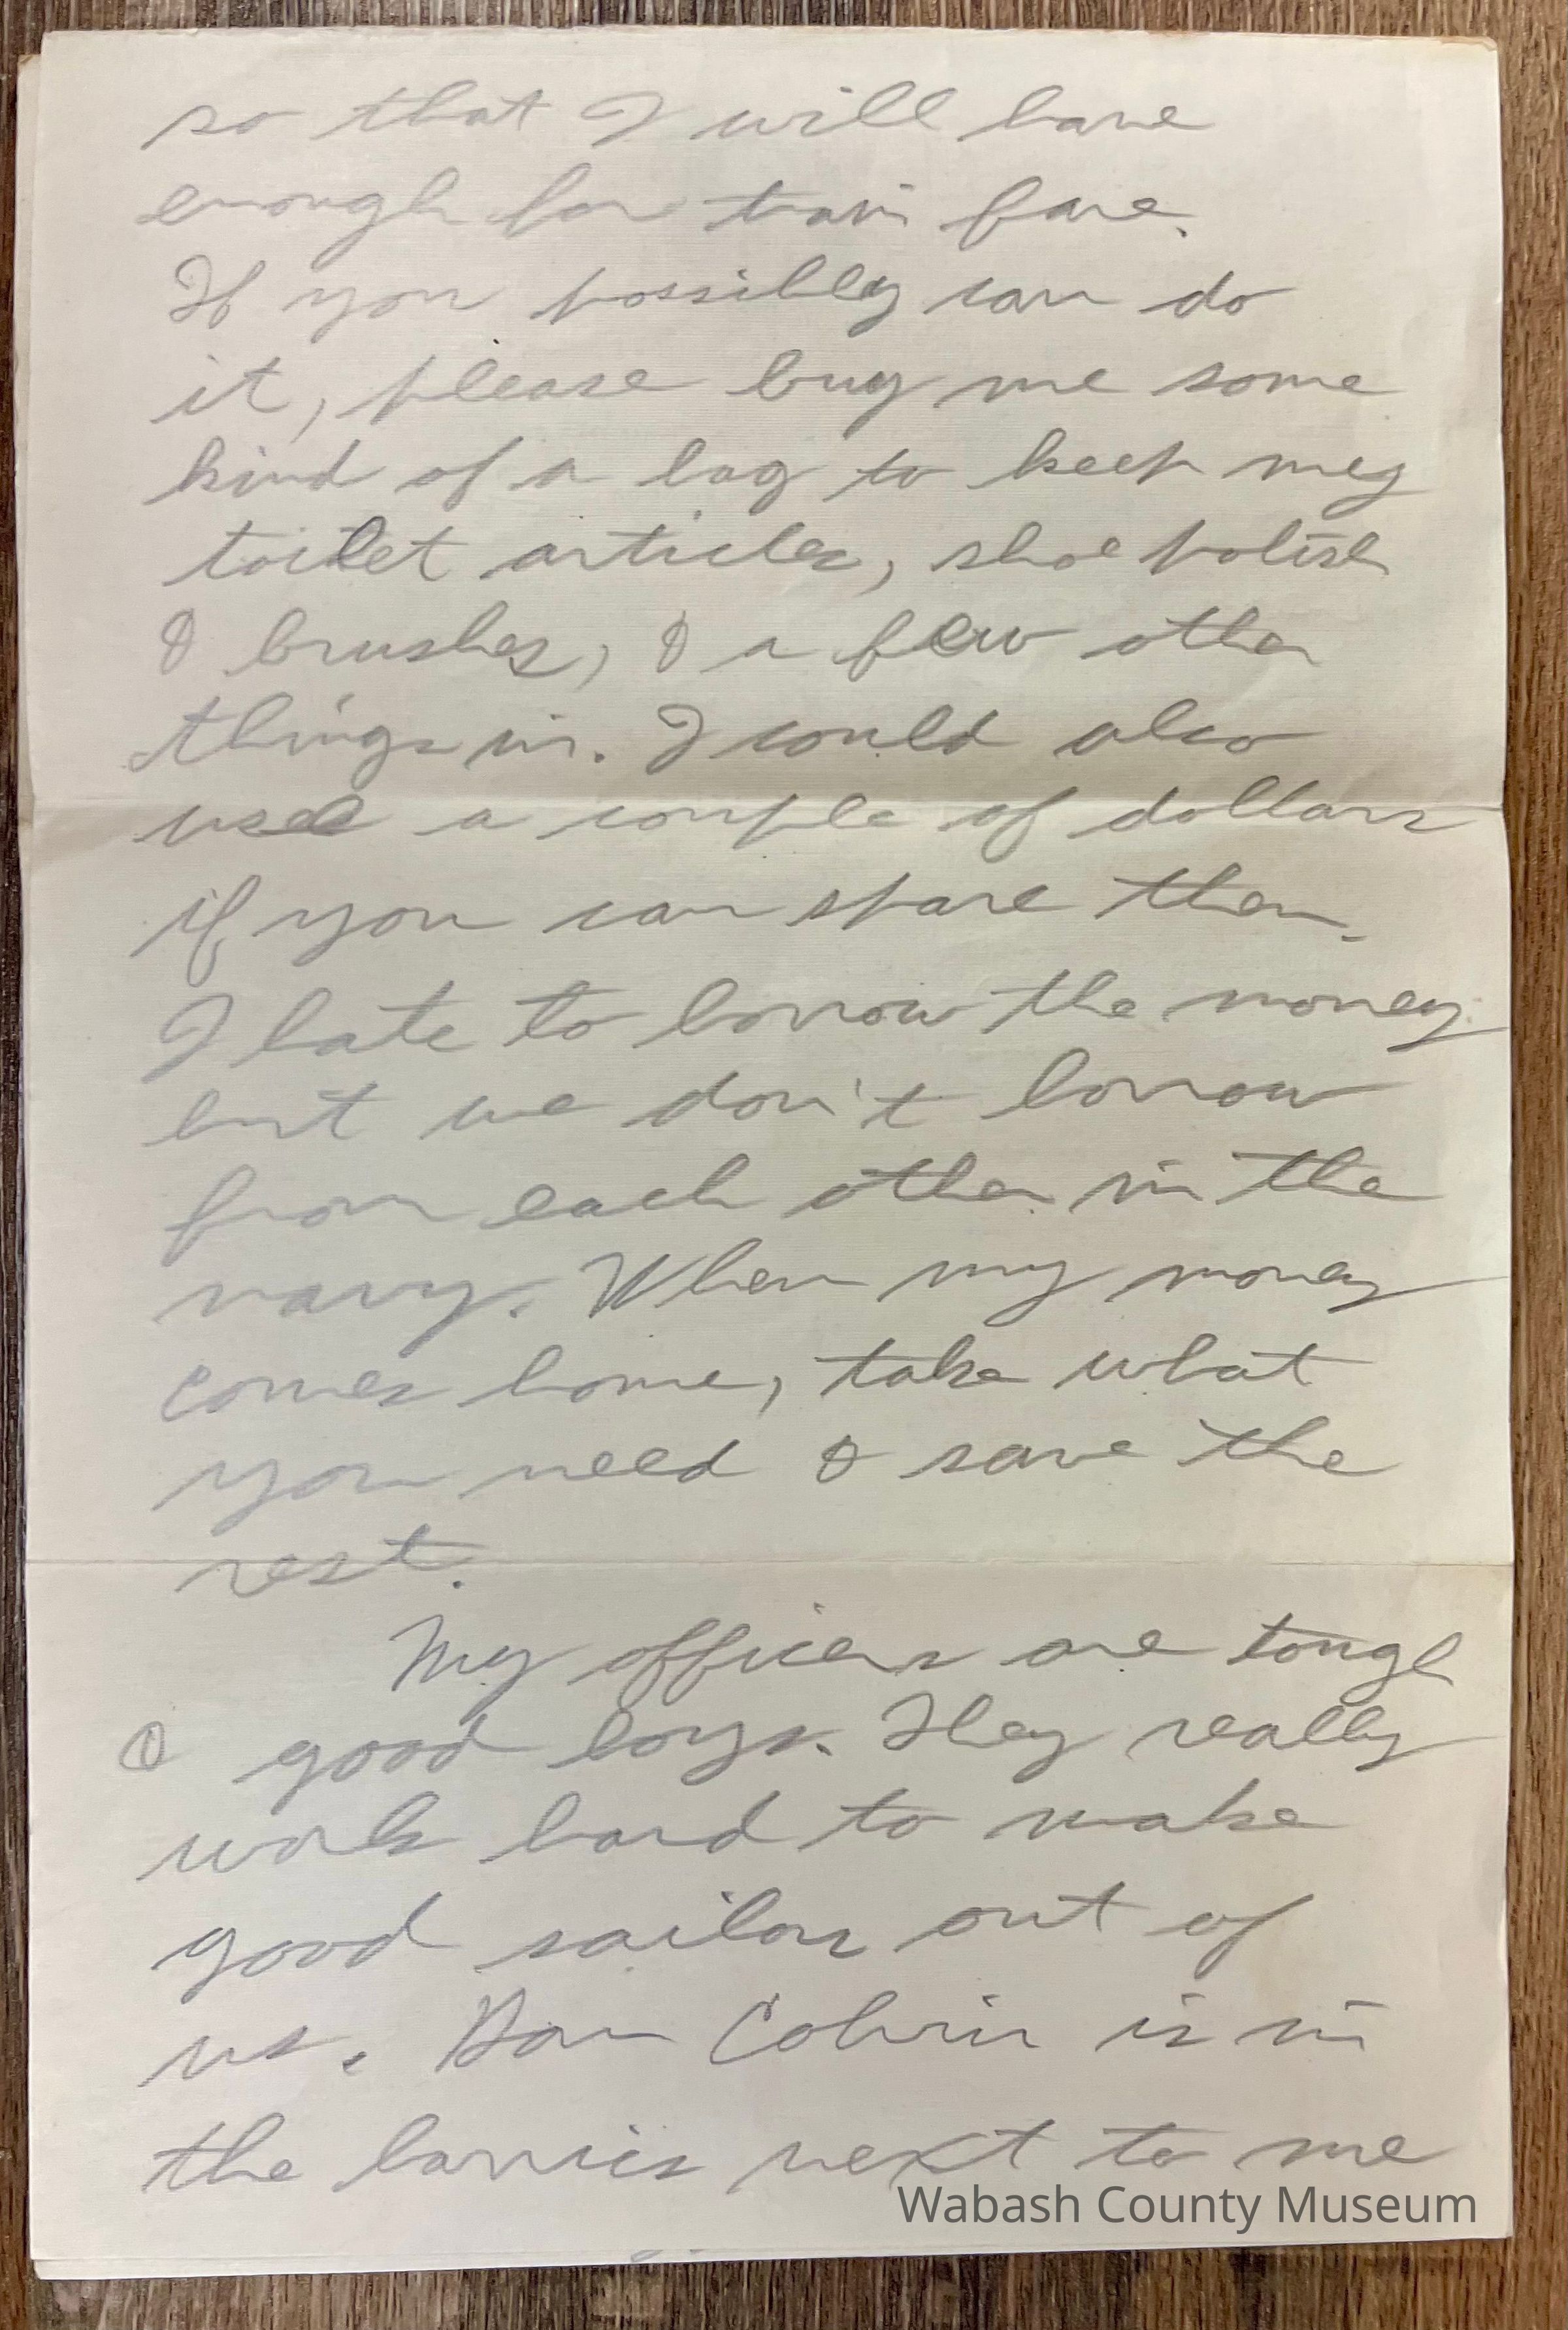 so that I will have
enough for train fare.
If you possibly can do
it, please buy me some
kind of a bag to keep my
toilet articles, shoe polish
& brushes, & a few other
things in. I could also
use a couple of dollars
if you can spare them.
I hate to borrow the money
but we don't borrow
from each other in the
navy. When my money
comes home, take what
you need & save the
rest.
My officers are tough
& good boys. They really
work hard to make
good sailors out of
us. Dan is in
the barrics next to me
Wabash County Museum